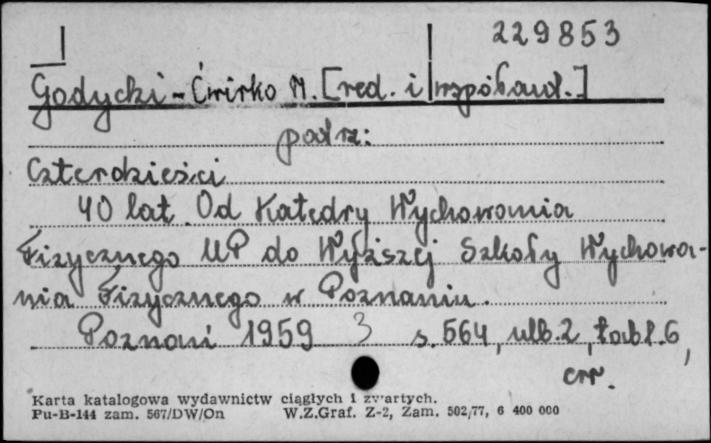 229853
Godycki-Ćwirko M. [red. i współaut.]
patrz:
Czterdzieści
40 lat Od Katedry Wychowania
Fizycznego UP do Wyższej Szkoły Wychowa-
nia Fizycznego w Poznaniu.
Poznań 1959 3 s. 564, ulb. 2, tabl. 6,
err.
Karta katalogowa wydawnictw ciągłych i zwartych.
Pu-B-144 zam. 567/DW/On W.Z.Graf. Z-2, Zam. 502/77, 6 400 000